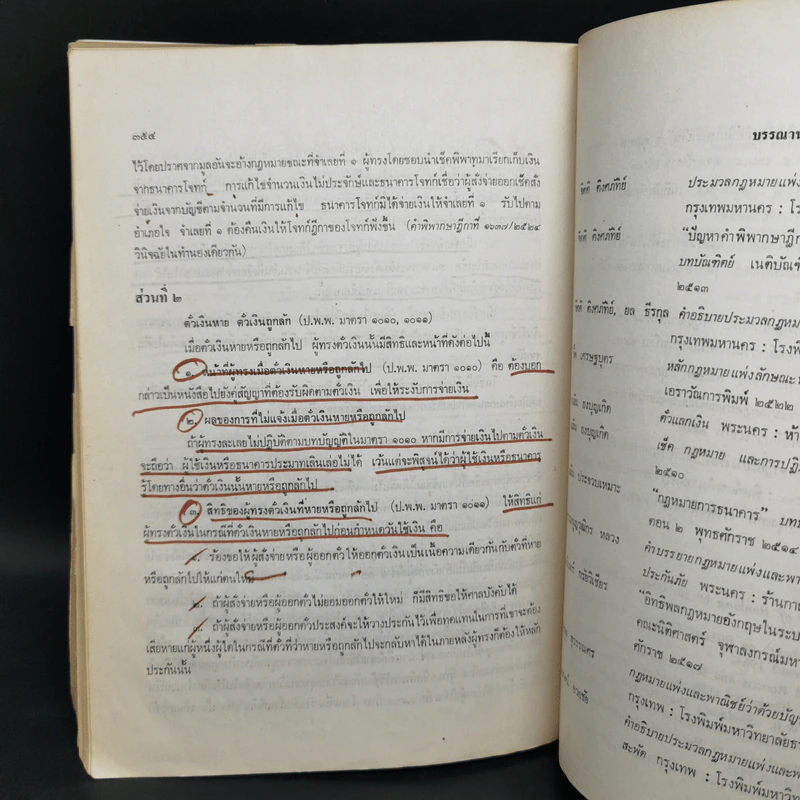 ๓๕๔
ไว้โดยปราศจากมูลอันจะอ้างกฎหมายขณะที่จำเลยที่ ๑ ผู้ทรงโดยชอบนำเช็คพิพาทมาเรียกเก็บเงิน
จากธนาคารโจทก์ การแก้ไขจำนวนเงินไม่ประจักษ์และธนาคารโจทก์เชื่อว่าผู้สั่งจ่ายออกเช็คสั่ง
จ่ายเงินจากบัญชีตามจำนวนที่มีการแก้ไข ธนาคารโจทก์มิได้จ่ายเงินให้จำเลยที่ ๑ รับไปตาม
อำเภอใจ จำเลยที่ ๑ ต้องคืนเงินให้โจทก์ฎีกาของโจทก์ฟังขึ้น (คำพิพากษาฎีกาที่ ๑๖๓๗/๒๕๒๔
วินิจฉัยในทำนองเดียวกัน)
ส่วนที่ ๒
ตั๋วเงินหาย ตั๋วเงินถูกลัก (ป.พ.พ. มาตรา ๑๐๑๐, ๑๐๑๑)
เมื่อตั๋วเงินหายหรือถูกลักไป ผู้ทรงตั๋วเงินนั้นมีสิทธิและหน้าที่ดังต่อไปนี้
๑. หน้าที่ผู้ทรงเมื่อตั๋วเงินหายหรือถูกลักไป (ป.พ.พ. มาตรา ๑๐๑๐) คือ ต้องบอก
กล่าวเป็นหนังสือไปยังคู่สัญญาที่ต้องรับผิดตามตั๋วเงิน เพื่อให้ระงับการจ่ายเงิน
๒. ผลของการที่ไม่แจ้งเมื่อตั๋วเงินหายหรือถูกลักไป
ถ้าผู้ทรงละเลยไม่ปฏิบัติตามบทบัญญัติในมาตรา ๑๐๑๐ หากมีการจ่ายเงินไปตามตั๋วเงิน
จะถือว่า ผู้ใช้เงินหรือธนาคารประมาทเลินเล่อไม่ได้ เว้นแต่จะพิสูจน์ได้ว่าผู้ใช้เงินหรือธนาคาร
รู้โดยทางอื่นว่าตั๋วเงินนั้นหายหรือถูกลักไป
๓. สิทธิของผู้ทรงตั๋วเงินที่หายหรือถูกลักไป (ป.พ.พ. มาตรา ๑๐๑๑) ให้สิทธิแก่
ผู้ทรงตั๋วเงินในกรณีที่ตั๋วเงินหายหรือถูกลักไปก่อนกำหนดวันใช้เงิน คือ
๑. ร้องขอให้ผู้สั่งจ่ายหรือผู้ออกตั๋วให้ออกตั๋วเงินเป็นเนื้อความเดียวกันกับตั๋วที่หาย
หรือถูกลักไปให้แก่ตนใหม่
๒. ถ้าผู้สั่งจ่ายหรือผู้ออกตั๋วไม่ยอมออกตั๋วให้ใหม่ ก็มีสิทธิขอให้ศาลบังคับได้
๓. ถ้าผู้สั่งจ่ายหรือผู้ออกตั๋วประสงค์จะให้วางประกันไว้เพื่อทดแทนในการที่เขาจะต้อง
เสียหายแก่ผู้หนึ่งผู้ใดในกรณีที่ตั๋วที่ว่าหายหรือถูกลักไปจะกลับหาได้ในภายหลังผู้ทรงก็ต้องให้หลัก
ประกันนั้น
บรรณาน
ประมวลกฎหมายแพ่ง
กรุงเทพมหานคร : โรง
"ปัญหาคำพิพากษาฎีกา
บทบัณฑิตย์ เนติบัณฑิ
๒๕๑๓
ยล ธีรกุล คำอธิบายประมวลกฎหมา
กรุงเทพมหานคร : โรง
เศรษฐบุตร หลักกฎหมายแพ่งลักษณะพั
เอราวัณการพิมพ์ ๒๕๒๒
ตั๋วแลกเงิน พระนคร : ห้า
เช็ค กฎหมาย และการปฏิ
๒๕๑๐
ประจวบเหมาะ "กฎหมายการธนาคาร" บท
ตอน ๒ พุทธศักราช ๒๕๑๔
หลวง คำบรรยายกฎหมายแพ่งและพา
ประกันภัย พระนคร : ร้านกา
"อิทธิพลกฎหมายอังกฤษในระบ
คณะนิติศาสตร์ จุฬาลงกรณ์มหา
ศักราช ๒๕๑๗
กฎหมายแพ่งและพาณิชย์ว่าด้วยบัญ
กรุงเทพ : โรงพิมพ์มหาวิทยาลัยธร
คำอธิบายประมวลกฎหมายแพ่งและพา
สะพัด กรุงเทพ : โรงพิมพ์มหาวิท